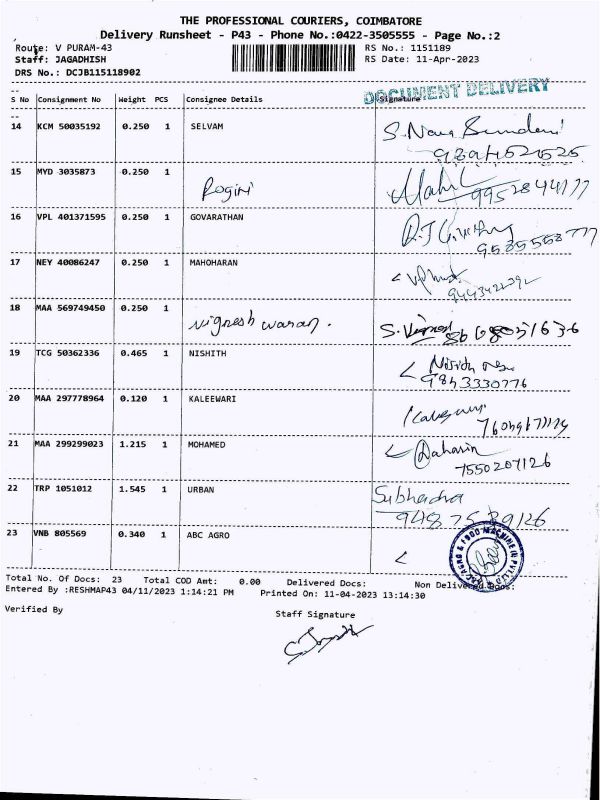 THE PROFESSIONAL COURIERS, COIMBATORE
Delivery Runsheet - P43 - Phone No.:0422-3505555 - Page No.:2
Route: V PURAM-43 RS No.: 1151189
Staff: JAGADHISH RS Date: 11-Apr-2023
DRS No.: DCJB115118902
DOCUMENT DELIVERY
S No Consignment No Weight PCS Consignee Details Signature
14 KCM 50035192 0.250 1 SELVAM
15 MYD 3035873 0.250 1 Rogini
16 VPL 401371595 0.250 1 GOVARATHAN
17 NEY 40086247 0.250 1 MAHOHARAN
18 MAA 569749450 0.250 1 Vignesh waran.
19 TCG 50362336 0.465 1 NISHITH
9843330776
20 MAA 297778964 0.120 1 KALEEWARI
21 MAA 299299023 1.215 1 MOHAMED
7550207126
22 TRP 1051012 1.545 1 URBAN Subhadra
23 VNB 805569 0.340 1 ABC AGRO
Total No. Of Docs: 23 Total COD Amt: 0.00 Delivered Docs: Non Delivered Docs:
Entered By :RESHMAP43 04/11/2023 1:14:21 PM Printed On: 11-04-2023 13:14:30
Verified By Staff Signature